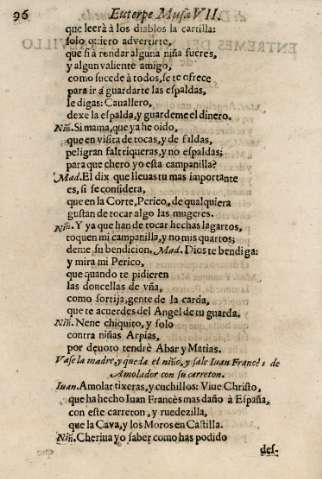 96 Euterpe Musa VII.
que leerà à los diablos la cartilla:
solo quiero advertirte,
que si à rendar alguna niña fueres,
y algun valiente amigo,
como sucede à todos, se te ofrece
para ir à guardarte las espaldas,
le digas: Cavallero,
dexe la espalda, y guardeme el dinero.
Niñ. Si mama, que ya he oido,
que en visita de tocas, y de faldas,
peligran faltriqueras, y no espaldas;
para que chero yo esta campanilla?
Mad. El dix que lleuas tu mas importante
es, si se considera,
que en la Corte, Perico, de qualquiera
gustan de tocar algo las mugeres.
Niñ. Y ya que han de tocar hechas lagartos,
toquen mi campanilla, y no mis quartos;
deme su bendicion. Mad. Dios te bendiga:
y mira mi Perico,
que quando te pidieren
las doncellas de vña,
como sortija, gente de la carda,
que te acuerdes del Angel de tu guarda.
Niñ. Nene chiquito, y solo
contra niñas Arpias,
por deuoto tendrè Abar y Matias.
Vase la madre, y queda el niño, y sale Iuan Francès de
Amolador con su carreton.
Iuan. Amolar tixeras, y cuchillos: Viue Christo,
que ha hecho Iuan Francès mas daño à España,
con este carreton, y ruedezilla,
que la Cava, y los Moros en Castilla.
Niñ. Cheriua yo saber como has podido
des-